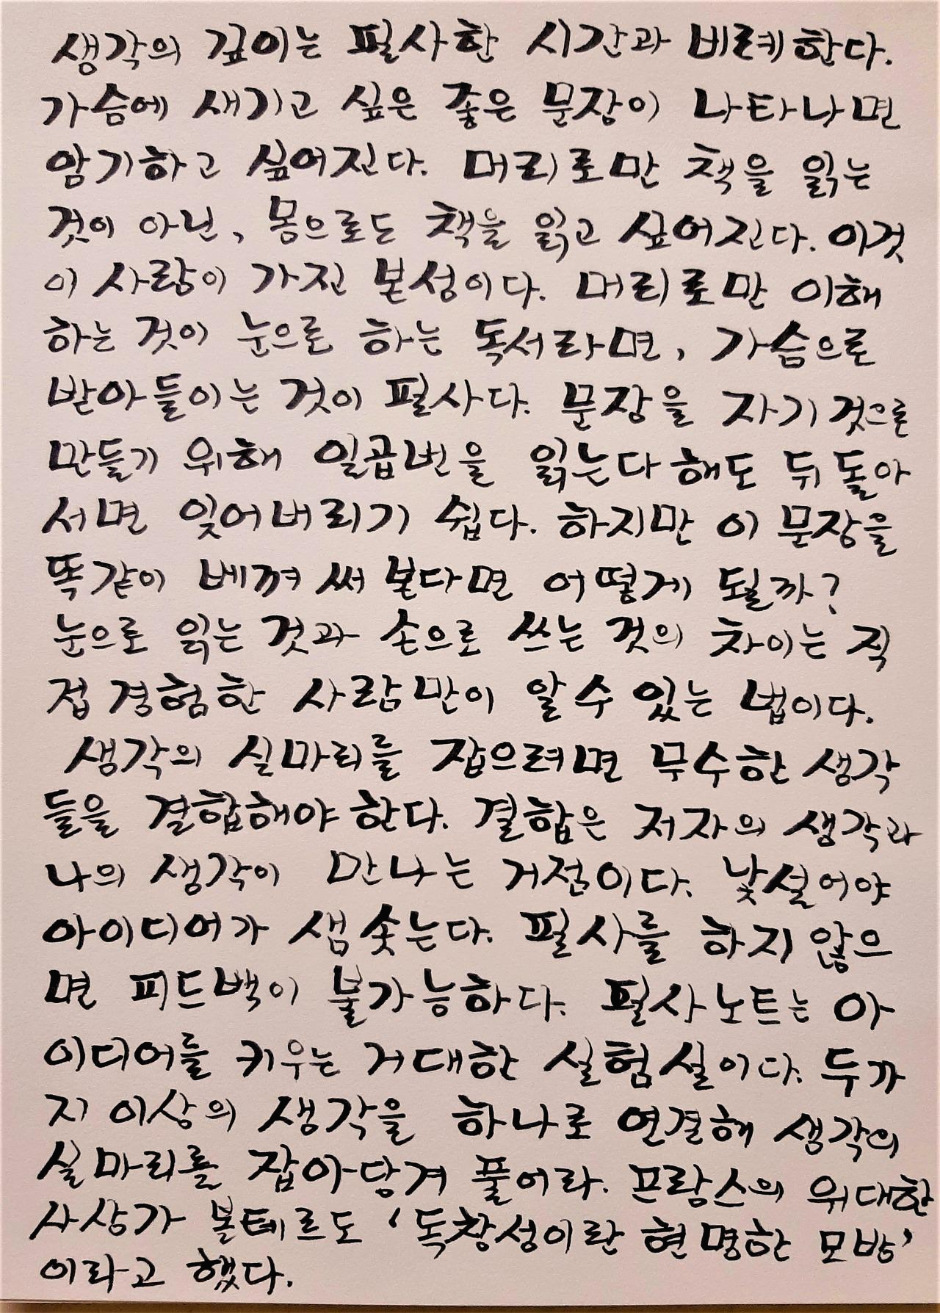 생각의 깊이는 필사한 시간과 비례한다.
가슴에 새기고 싶은 좋은 문장이 나타나면
암기하고 싶어진다. 머리로만 책을 읽는
것이 아닌, 몸으로도 책을 읽고 싶어진다. 이것
이 사람이 가진 본성이다. 머리로만 이해
하는 것이 눈으로 하는 독서라면, 가슴으로
받아들이는 것이 필사다. 문장을 자기것으로
만들기 위해 일곱번을 읽는다 해도 뒤돌아
서면 잊어버리기 쉽다. 하지만 이 문장을
똑같이 베껴 써 본다면 어떻게 될까?
눈으로 읽는 것과 손으로 쓰는 것의 차이는 직
접 경험한 사람만이 알수 있는 법이다.
생각의 실마리를 잡으려면 무수한 생각
들을 결합해야 한다. 결합은 저자의 생각과
나의 생각이 만나는 거점이다. 낯설어야
아이디어가 샘솟는다. 필사를 하지 않으
면 피드백이 불가능하다. 필사노트는 아
이디어를 키우는 거대한 실험실이다. 두가
지 이상의 생각을 하나로 연결해 생각의
실마리를 잡아당겨 풀어라. 프랑스의 위대한
사상가 볼테르도 '독창성이란 현명한 모방'
이라고 했다.